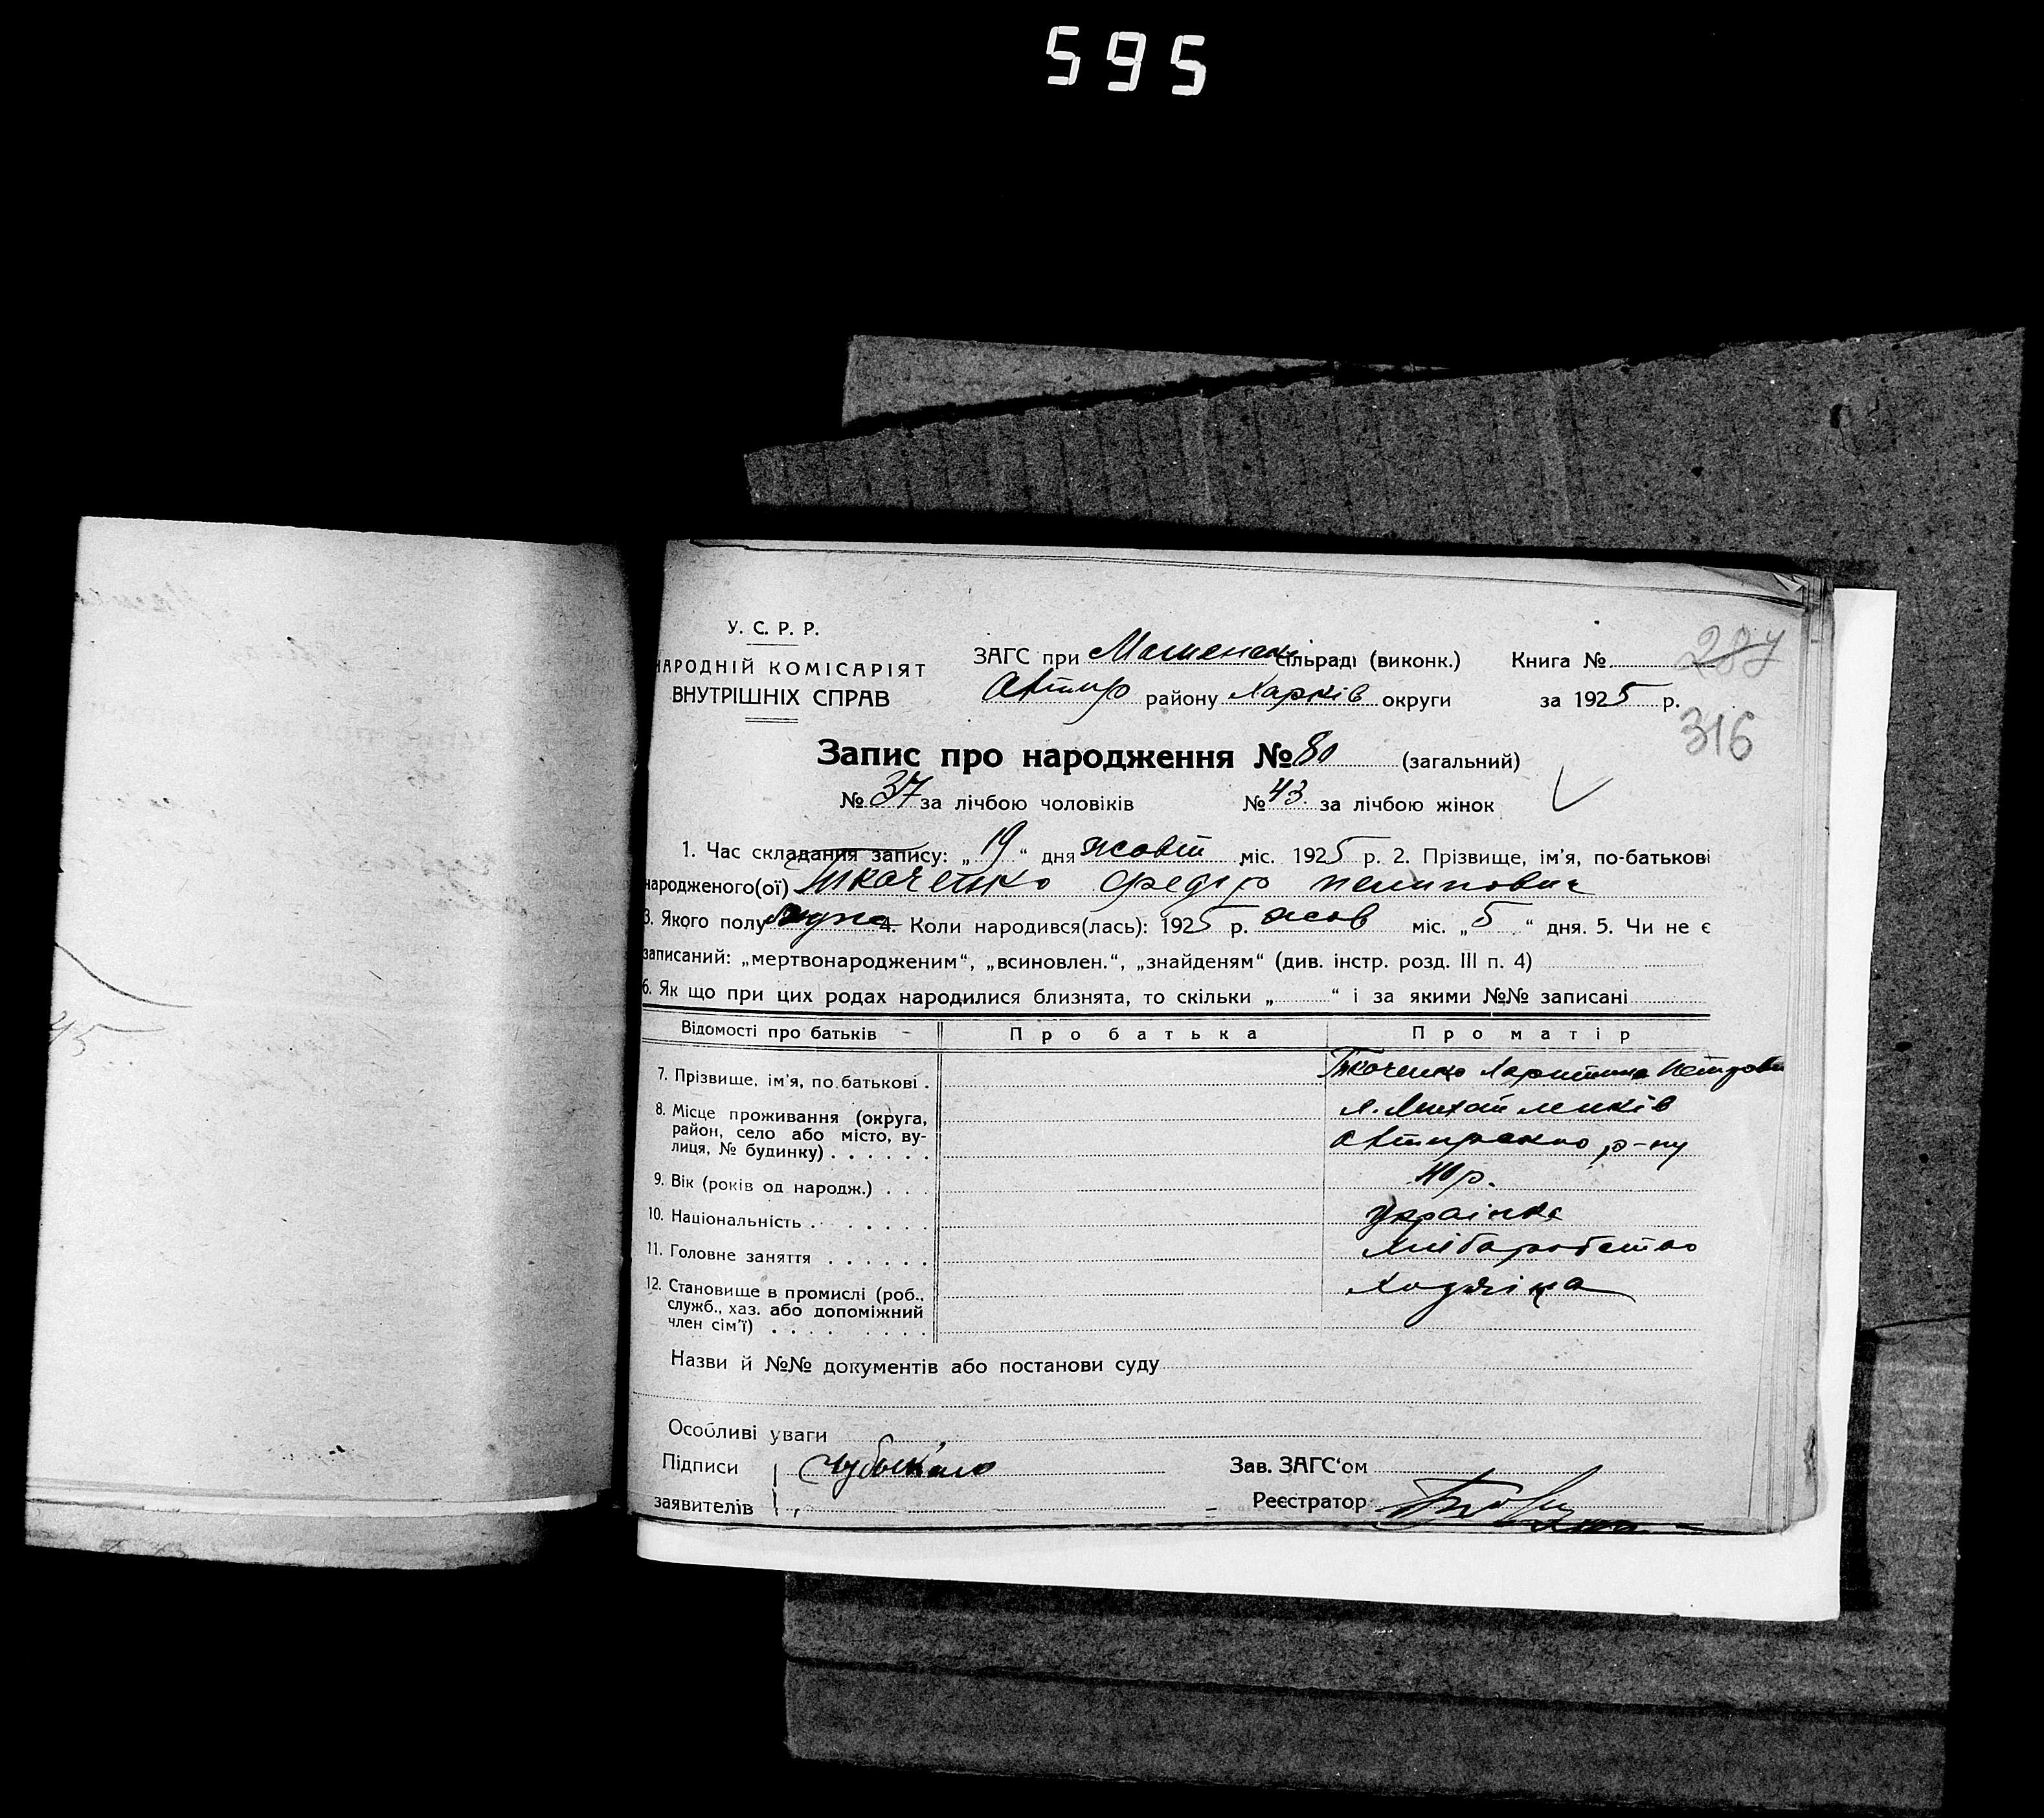 595
У. С. Р. Р.
НАРОДНІЙ КОМІСАРІЯТ
ВНУТРІШНІХ СПРАВ
ЗАГС при сільраді (виконк.) Книга № 287
району Харків округи за 1925 р.
316
Запис про народження № 80 (загальний)
№ 37 за лічбою чоловіків № 43. за лічбою жінок
1. Час складання запису: „ 19 “ дня жовт міс. 1925 р. 2. Прізвище, ім’я, по-батькові
народженого(ої) Ткаченко Федор пелипович
3. Якого полу муж 4. Коли народився(лась): 1925 р. жов міс. „ 5 “ дня. 5. Чи не є
записаний: „мертвонародженим“, „всиновлен.“, „знайденям“ (див. інстр. розд. III п. 4)
6. Як що при цих родах народилися близнята, то скільки „ “ і за якими №№ записані
Відомості про батьків Про батька Про матір
7. Прізвище, ім’я, по батькові . Ткаченко Харитина Петров
8. Місце проживання (округа,
район, село або місто, ву-
лиця, № будинку) . . . . . . р-ну
9. Вік (років од народж.) . . . 40 р.
10. Національність . . . . . . . Українка
11. Головне заняття . . . . . . Хліборобство
12. Становище в промислі (роб., Хозяіка
служб., хаз. або допоміжний
член сім’ї) . . . . . . . .
Назви й №№ документів або постанови суду
Особливі уваги
Підписи Зав. ЗАГС‘ом
заявителів Реєстратор